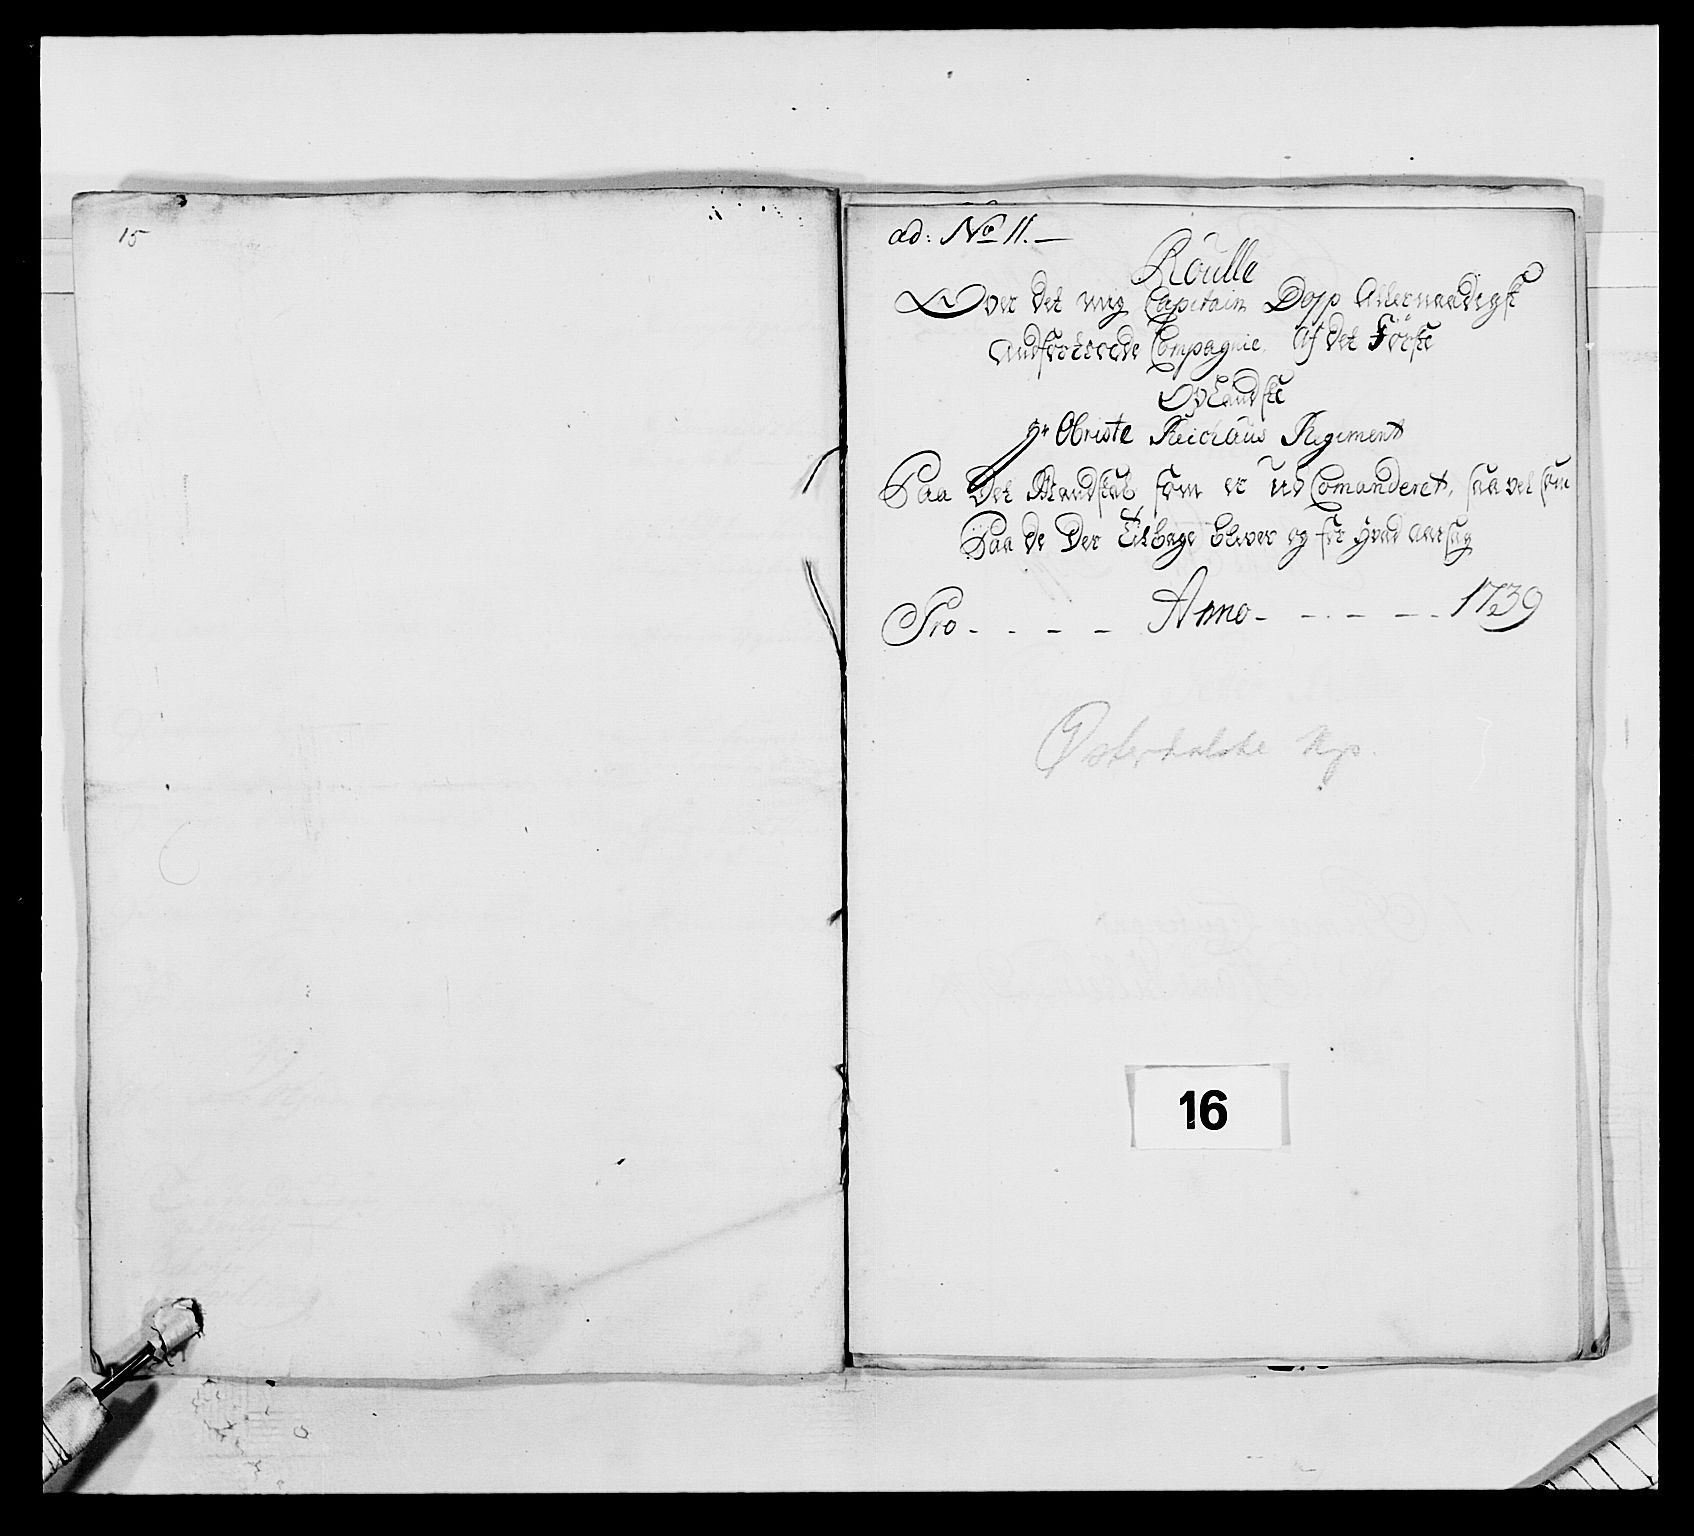 15
ad: No 11. —
Roulle
Over det mig Capitain Dopp Allernaadigst
Andfortroede Compagnie. Af det Förste
Oplandske
Hr Obriste Reichaus Regiment
Paa Det Mandskab som er ud Comanderet, saa vel som
Paa de Der Tilbage bliver og for hvad aarsag
Pro - - - - Anno - - - - - 1739
Østerdalske Kp.
16